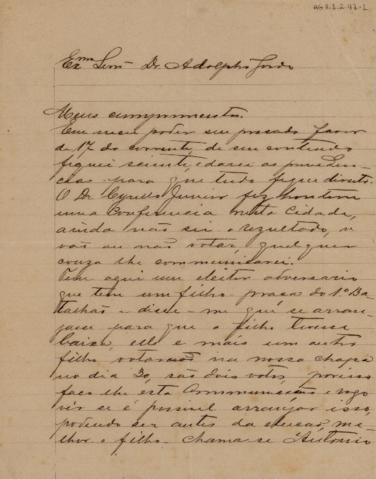 Exmo Snr Dr. Adolpho Gordo
Meus cumprimentos.
Em meu poder seu presado favor
de 17 do corrente, de seu conteudo
fiquei sciente, e darei as providen-
cias para que tudo fique direito.
O Dr. Cyrillo Junior fez hontem
uma Conferencia nesta Cidade,
ainda não sei o resultado, si
vão ou não votar, qualquer
couza lhe communicarei.
Tem aqui um eleitor adversario
que tem um filho praça do 1º Ba-
talhão e disse-me que se arran-
jasse para que o filho tivesse
baixa, elle e mais um outro
filho votarão na nossa chapa
no dia 30, são dois votos, por isso
faço lhe esta Communicação e rogo
ver se é possivel arranjar isso,
podendo ser antes da eleição, me-
lhor o filho chama-se Antonio